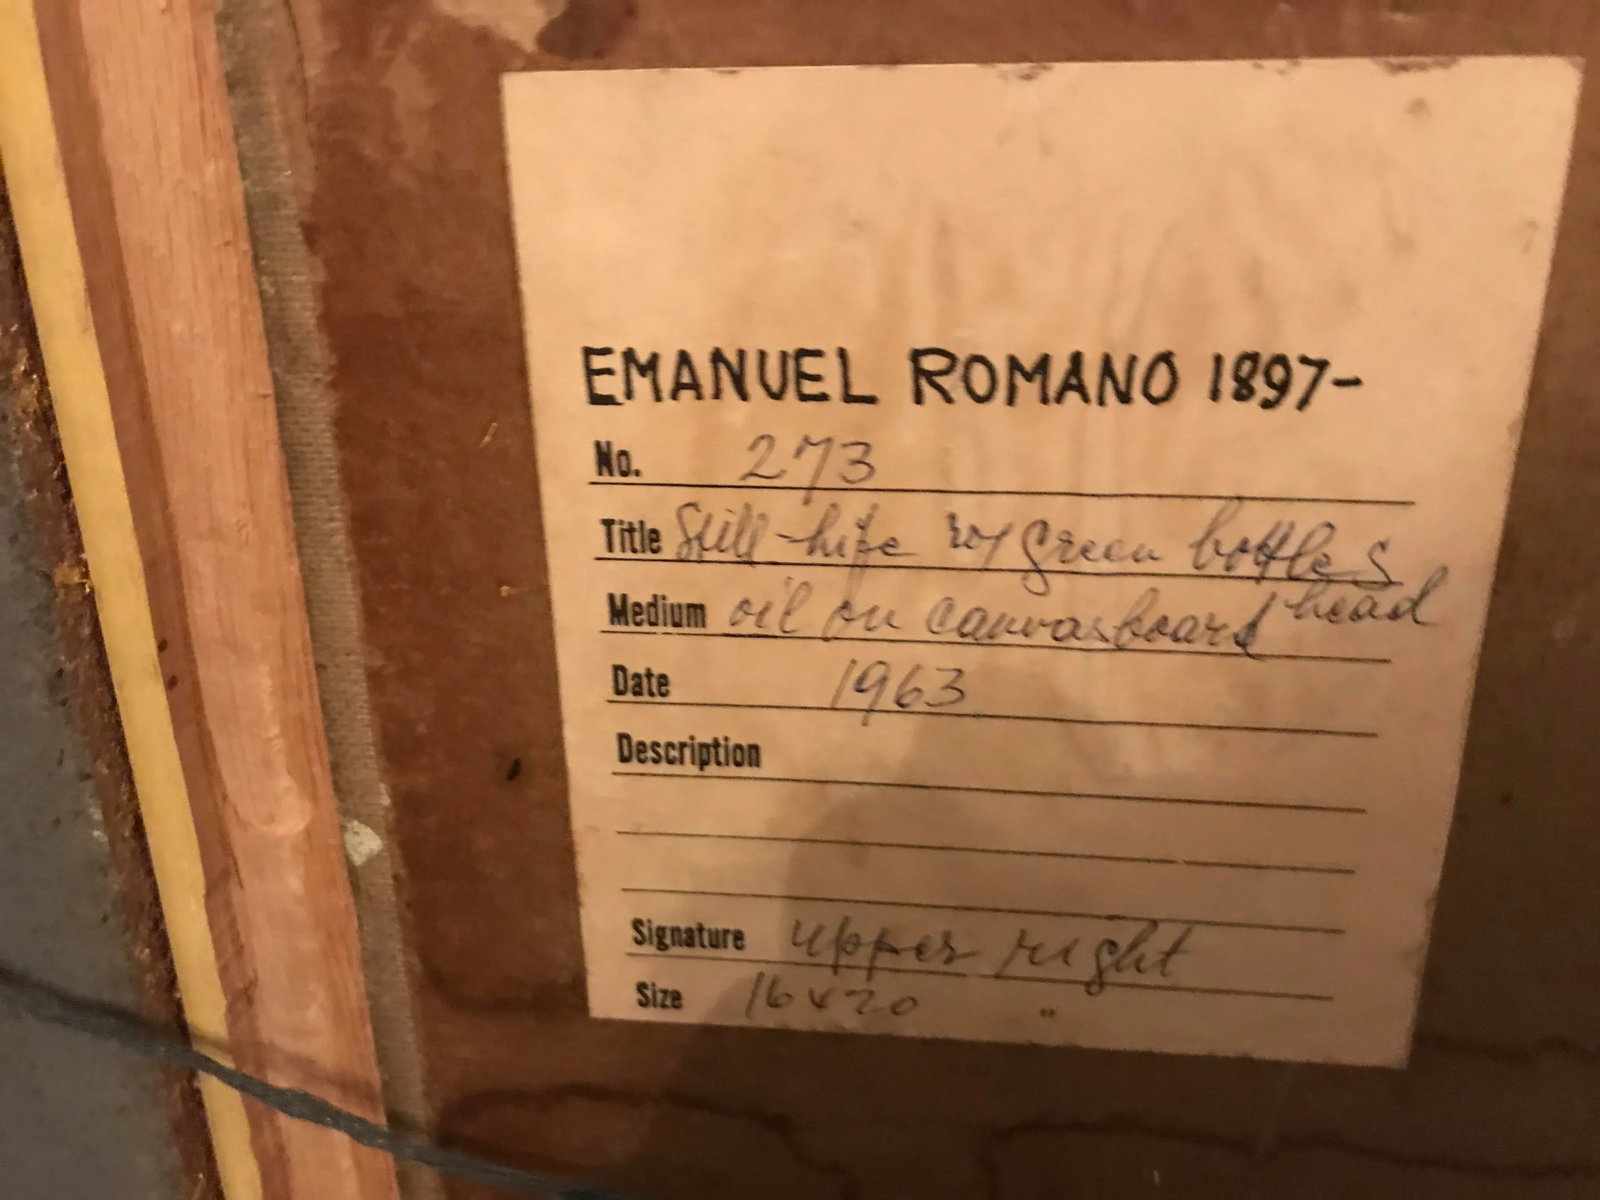 EMANUEL ROMANO 1897-
No. 273
Title Still-life w/ green bottles
head
Medium oil on canvasboard
Date 1963
Description
Signature upper right
Size 16x20 "